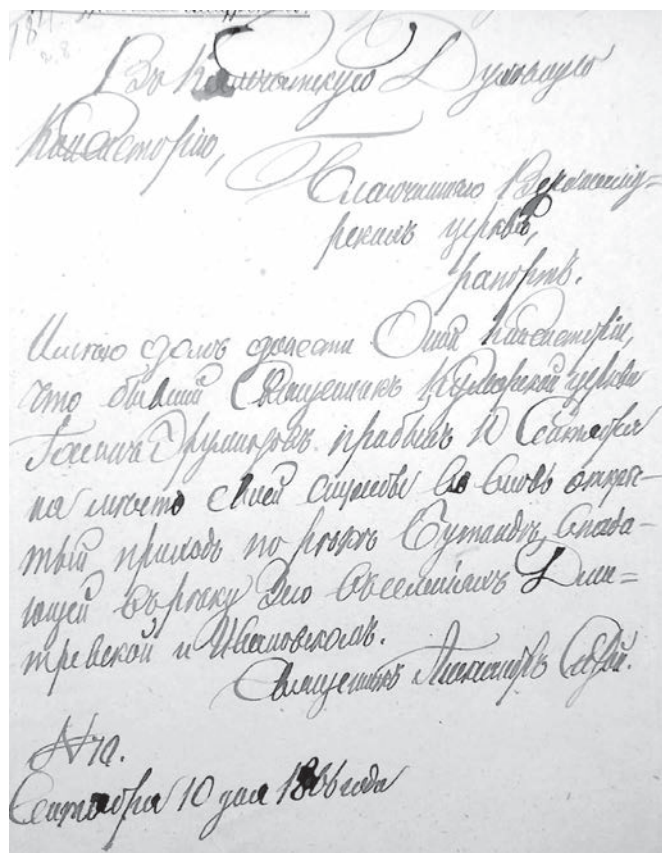 Въ Камчатскую Духовную
Консисторію,
Благочиннаго Верхнеаму=
рскихъ церквей,
рапортъ.
Имѣю долгъ донести Оной Консисторіи,
что бывшій Священникъ Кумарской церкви
прибылъ 10 Сентября
на мѣсто своей службы во вновь откры-
тый приходъ по рѣкѣ впада-
ющей въ рѣку Зею въ селеніяхъ Дми=
тревской и Ивановскомъ.
Священникъ Александръ Сизой.
№ 70.
Сентября 10 дня 1866 года